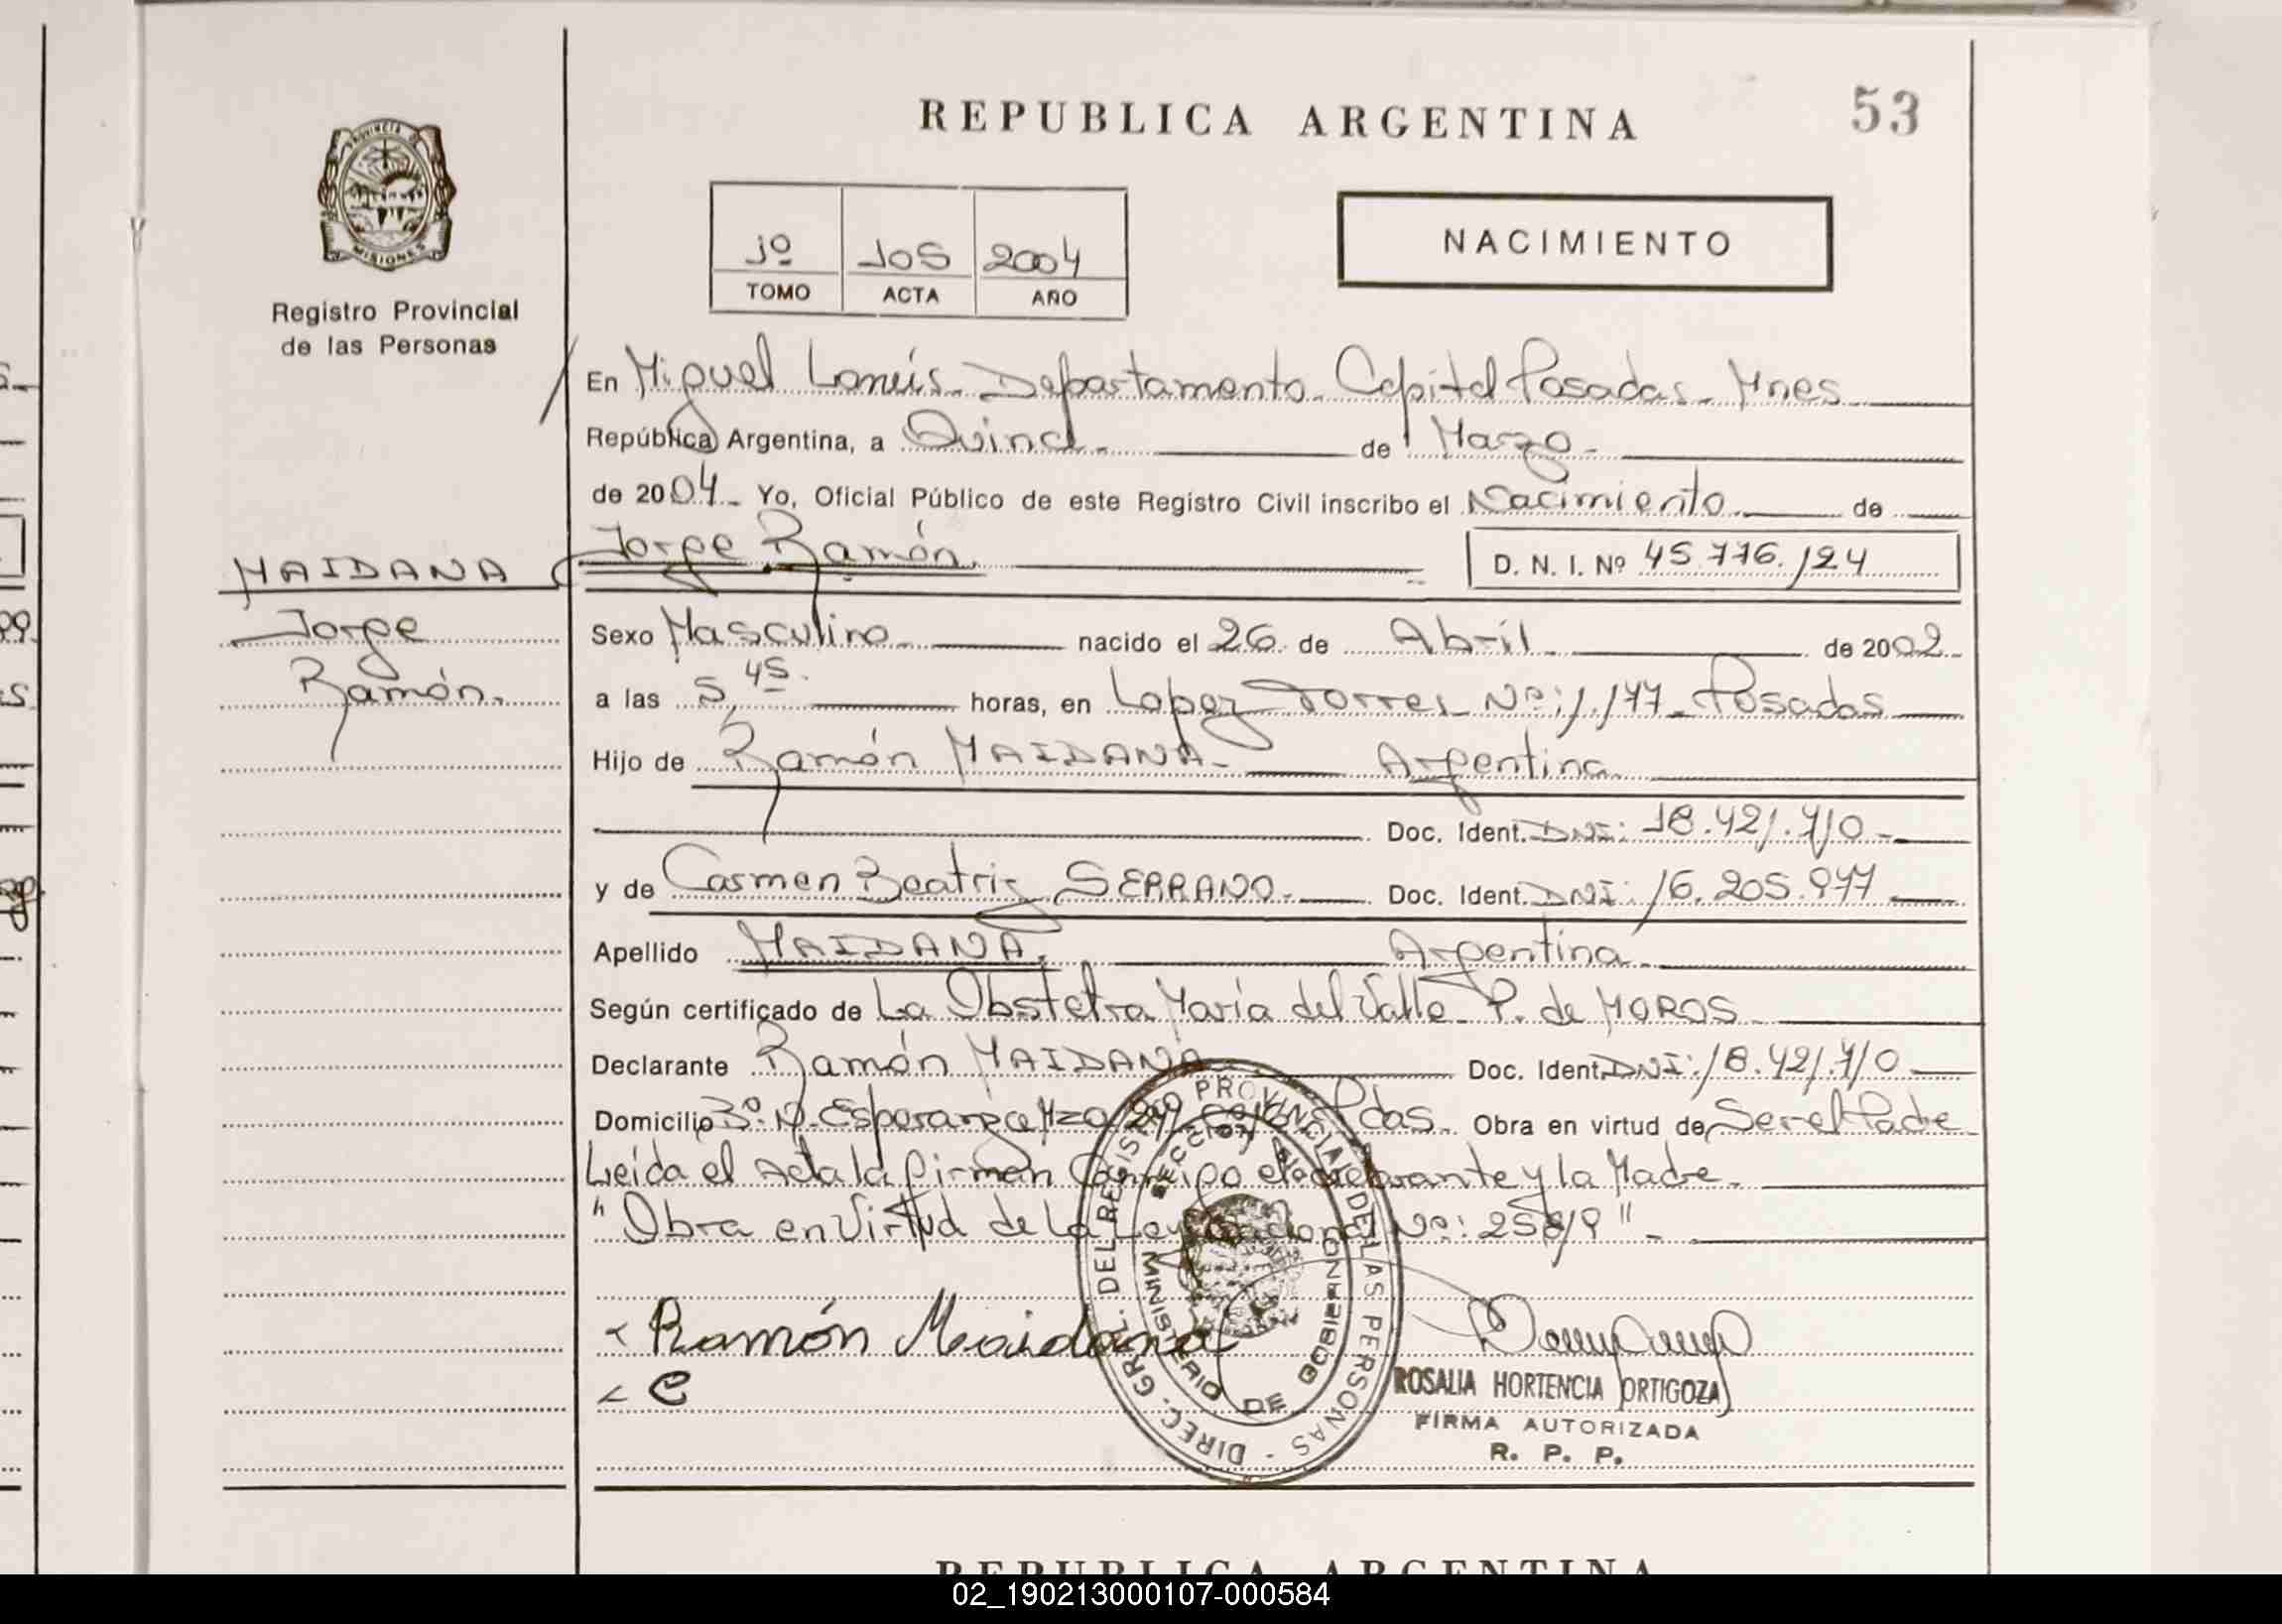 REPUBLICA ARGENTINA
53
PROVINCIA DE
MISIONES
Registro Provincial
de las Personas
1º 105 2004
TOMO ACTA AÑO
NACIMIENTO
En Miguel Lanús- Departamento- Capital Posadas- Mnes
República Argentina, a Quince- de Marzo-
de 2004- Yo, Oficial Público de este Registro Civil inscribo el Nacimiento de
MAIDANA Jorge Ramón. D. N. I. Nº 45.776.124
Jorge
Ramón.
Sexo Masculino- nacido el 26 de Abril de 2002-
a las 5,45. horas, en Lopez Torres Nº: 1.177- Posadas
Hijo de Ramón MAIDANA- Argentina
Doc. Ident. DNI: 18.421.710-
y de Carmen Beatriz SERRANO- Doc. Ident. DNI: 16.205.977
Apellido MAIDANA. Argentina
Según certificado de La Obstetra María del Valle P. de MOROS
Declarante Ramón MAIDANA Doc. Ident. DNI: 18.421.710
Domicilio Bº. N. Esperanza Mza Pdas. Obra en virtud de Ser el Padre
Leída el Acta la firman Conmigo el declarante y la Madre.
"Obra en Virtud de la Ley Nacional Nº: 25819"-
Ramón Maidana
C
DIREC. GRAL. DEL REGISTRO PROVINCIAL DE LAS PERSONAS
MINISTERIO DE GOBIERNO
ROSALIA HORTENCIA ORTIGOZA
FIRMA AUTORIZADA
R. P. P.
REPUBLICA ARGENTINA
02_190213000107-000584